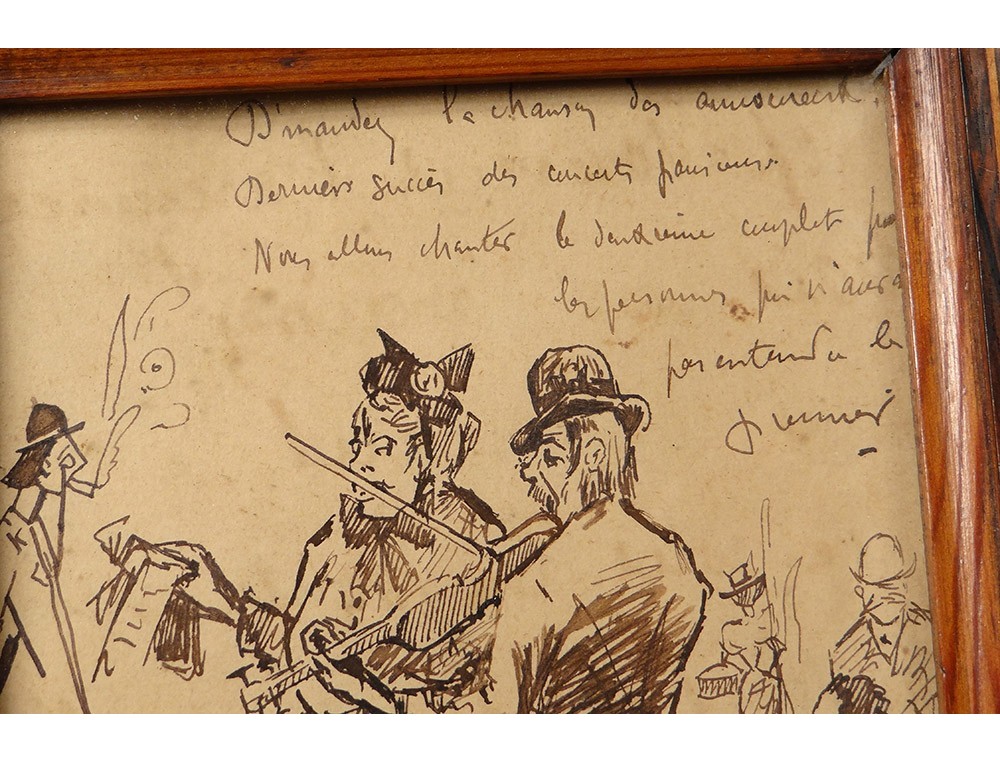 D'mandez la chanson des amoureux.
Derniers succès des concerts parisiens.
Nous allons chanter le deuxième couplet pou
les personnes qui n'aura
pas entendu le
premier